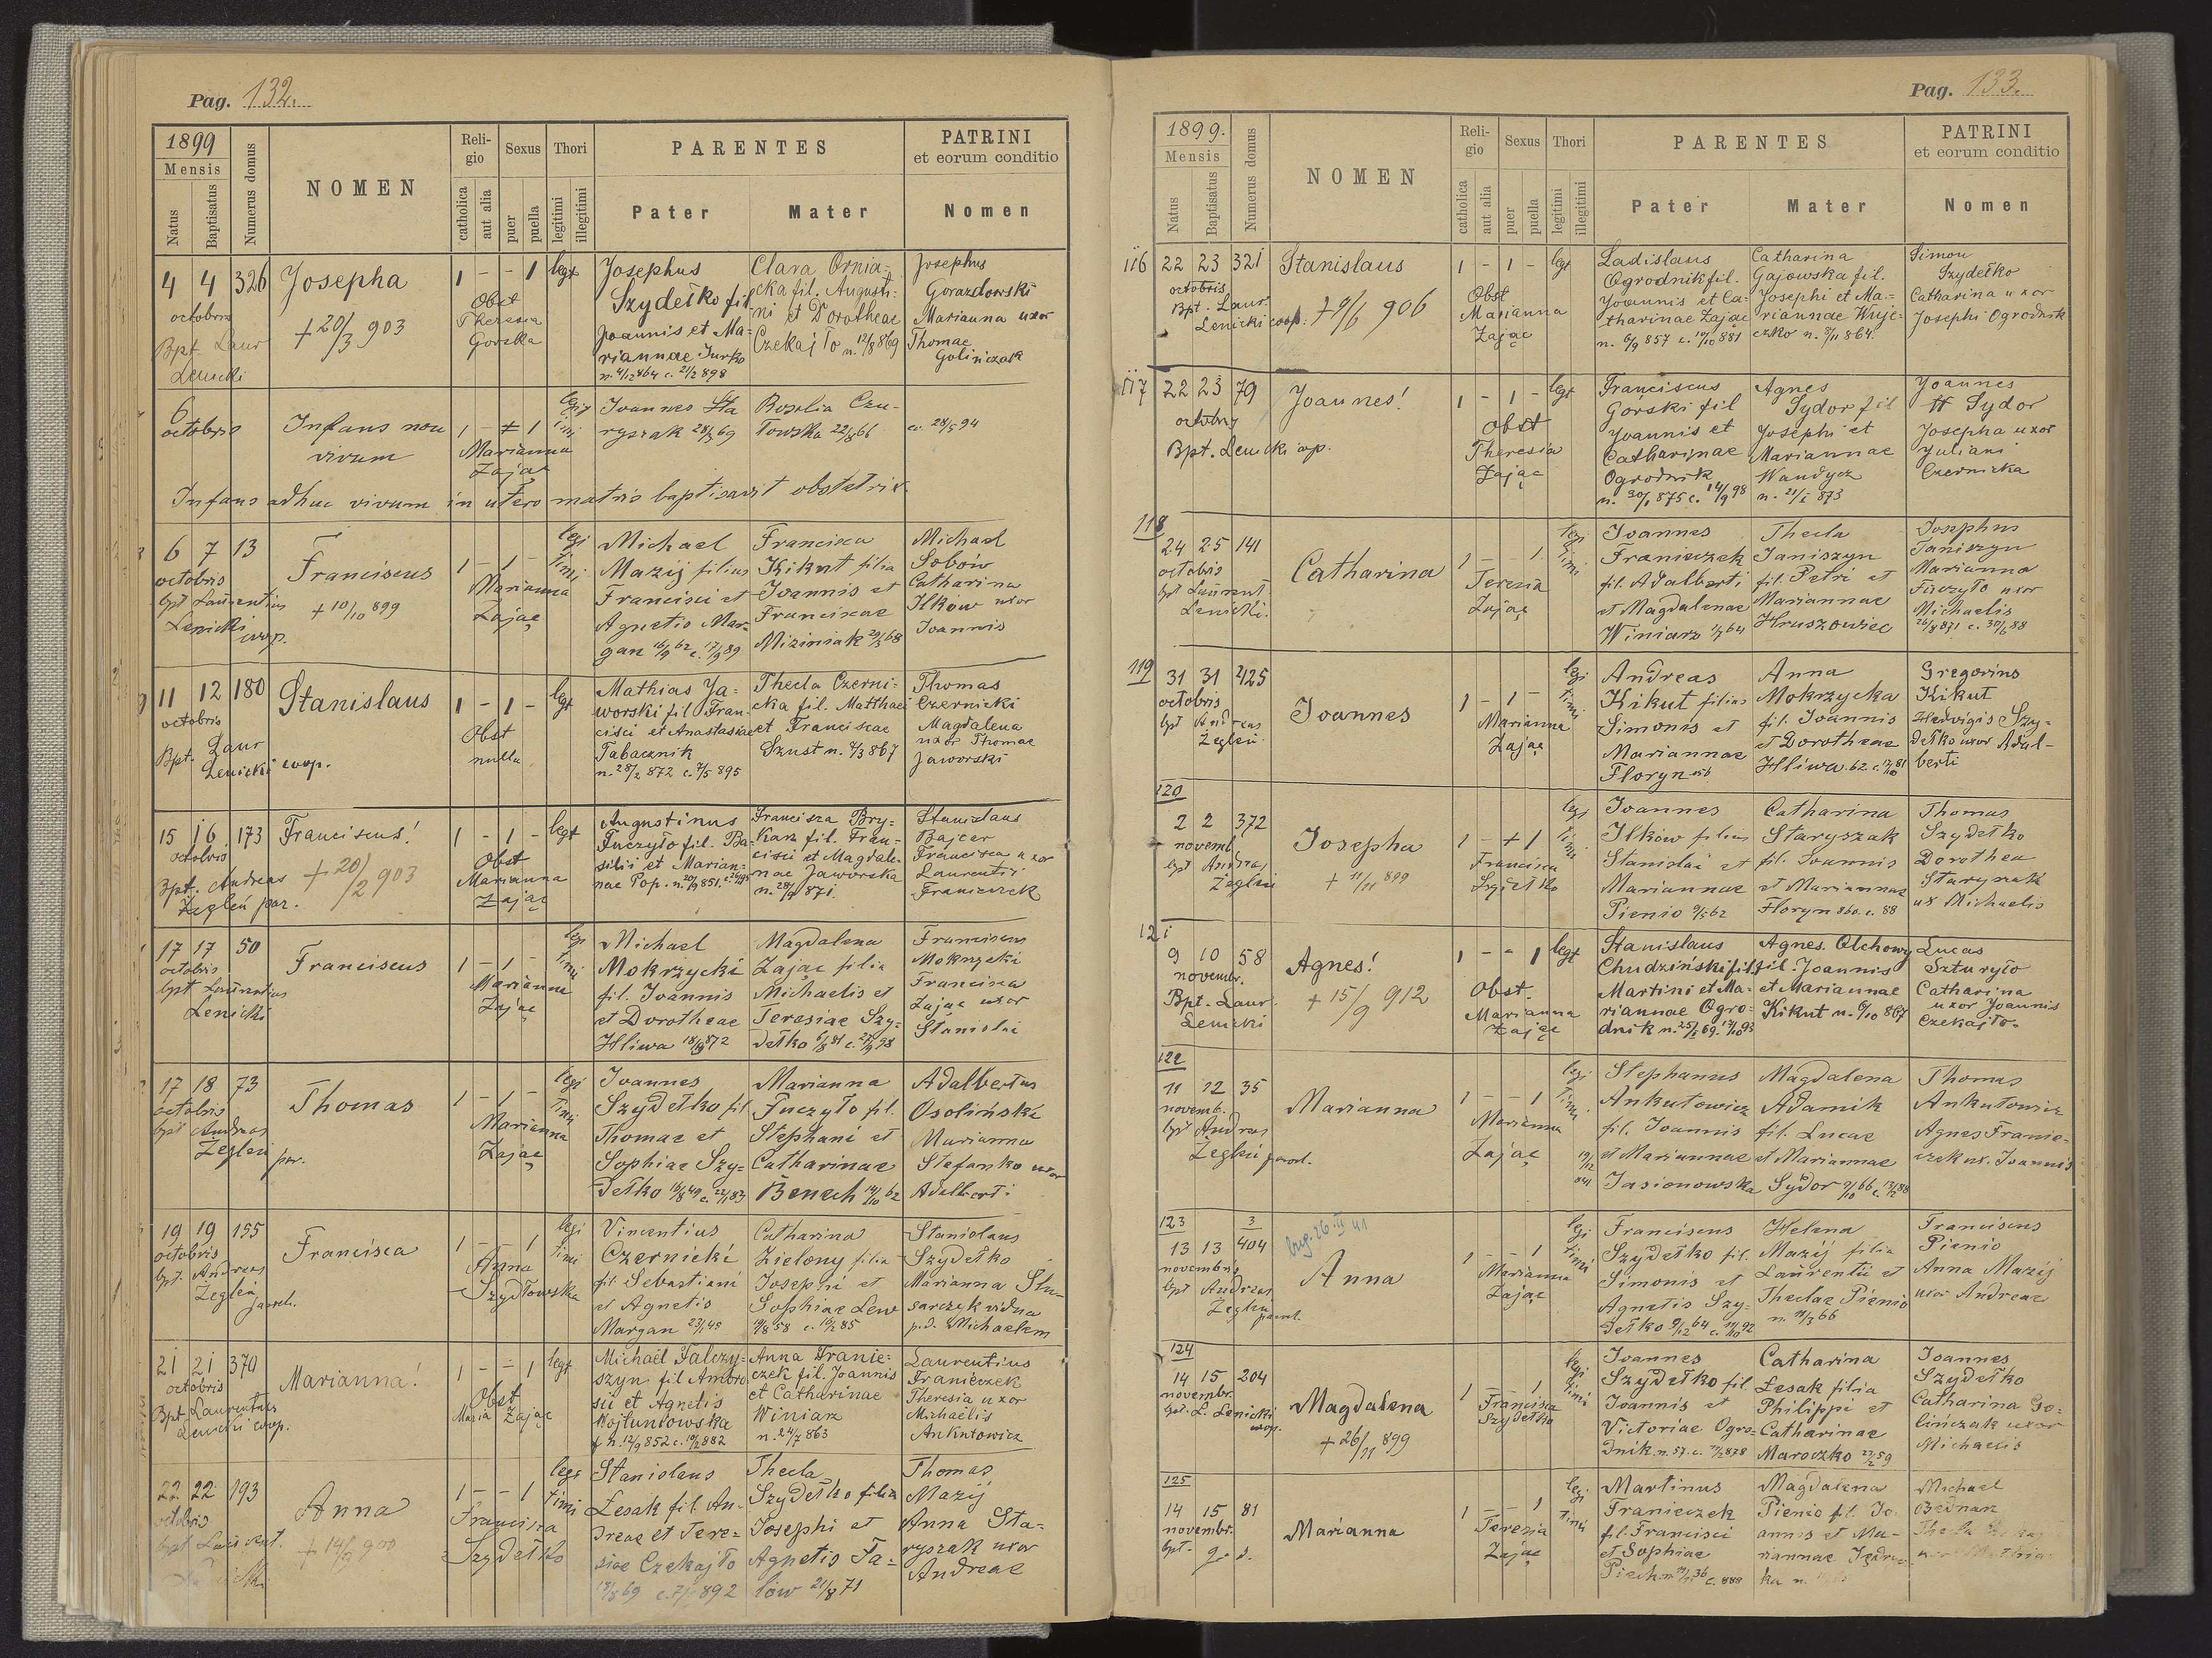 Pag. 132.
1899
Mensis
Natus
Baptisatus
Numerus domus
NOMEN
Religio
catholica
aut alia
Sexus
puer
puella
Thori
legitimi
illegitimi
PARENTES
Pater
Mater
PATRINI
et eorum conditio
Nomen
4 4 326 Josepha 1 - - 1 legt
octobris
Bpt. Laur
Lenicki
+ 20/3 903
Obst
Theresia
Gorska
Josephus
Szydełko fil.
Joannis et Ma-
riannae Jurko
n. 4/12 864 c. 21/2 898
Clara Ornia-
cka fil. Augusti-
ni et Dorotheae
Czekajło n. 12/8 869
Josephus
Gorazdowski
Marianna uxor
Thomae
Golinczak
6
octobris
Infans non
vivum
Marianna
Zając
Joannes Sta
ryszak 28/3 69
Rosalia Czu-
łowska 22/8 66
c. 28/5 94
Infans adhuc vivum in utero matris baptisavit obstetrix.
6 7 13
octobris
bpt Laurentius
Lenicki
coop.
Franciscus
+ 10/10 899
1 - 1 - legitimi
Marianna
Zając
Michael
Mazij filius
Francisci et
Agnetis Mar-
gan 16/9 62 c. 17/9 89
Francisca
Kikut filia
Joannis et
Franciscae
Miziniak 29/3 68
Michael
Sobów
Catharina
Ilków uxor
Joannis
11 12 180
octobris
Bpt. Laur
Lenicki coop.
Stanislaus
1 - 1 - legt
Obst
nulla
Mathias Ja-
worski fil Fran-
cisci et Anastasiae
Tabacznik
n. 28/2 872 c. 7/5 895
Thecla Czerni-
cka fil. Matthaei
et Franciscae
Szust n. 7/3 867
Thomas
Czernicki
Magdalena
uxor Thomae
Jaworski
15 16 173
octobris
Bpt. Andreas
Żegleń par.
Franciscus!
+ 20/2 903
1 - 1 - legt
Obst
Marianna
Zając
Augustinus
Fuczyło fil. Ba-
silii et Marian-
nae Pop. n. 20/9 851.
Francisca Bry=
karz fil. Fran-
cisci et Magdale-
nae Jaworska
Stanislaus
Bajcar
Francisca uxor
Laurentii
Franiczek
17 17 50
octobris
bpt Laurentius
Lenicki
Franciscus
1 - 1 - legitimi
Marianna
Zając
Michael
Mokrzycki
fil. Joannis
et Dorotheae
Hliwa
Magdalena
Zając filia
Michaelis et
Teresiae Szy-
dełko
Franciscus
Mokrzycki
Francisca
Zając uxor
Stanislai
17 18 73
octobris
bpt Andreas
Żegleń par.
Thomas
1 - 1 - legitimi
Marianna
Zając
Joannes
Szydełko fil.
Thomae et
Sophiae Szy-
dełko 16/8 49 c. 22/1 83
Marianna
Fuczyło fil.
Stephani et
Catharinae
Benech 14/10 62
Adalbertus
Osoliński
Marianna
Stefanko uxor
Adalberti
19 19 155
octobris
bpt. Andreas
Żegleń
paroch.
Francisca
1 - - 1 legitimi
Anna
Szydłowska
Vincentius
Czernicki
fil Sebastiani
et Agnetis
Margan 23/1 45
Catharina
Zielony filia
Josephi et
Sophiae Lew
Stanislaus
Szydełko
Marianna Ślu-
sarczyk vidua
p. d. Michaelem
21 21 370
octobris
Bpt Laurentius
Lenicki coop.
Marianna!
1 - - 1 legt
Obst
Maria Zając
Michaël Falczy-
szyn fil Ambro
sii et Agnetis
Wojtuniowska
n. 12/9 852
Anna Franie-
czek fil. Joannis
et Catharinae
Winiarz
n. 24/7 863
Laurentius
Franiczek
Theresia uxor
Michaëlis
Ankutowicz
22 22 193
octobris
Anna
1 - - 1 legitimi
Francisca
Szydełko
Stanislaus
Łesak fil. An-
dreae et Tere=
siae Czekajło
Thecla
Szydełko filia
Josephi et
Agnetis Fa-
lów 21/8 71
Thomas
Mazij
Anna Sta-
ryszak uxor
Andreae
Pag. 133.
1899.
Mensis
Natus
Baptisatus
Numerus domus
NOMEN
Religio
catholica
aut alia
Sexus
puer
puella
Thori
legitimi
illegitimi
PARENTES
Pater
Mater
PATRINI
et eorum conditio
Nomen
116 22 23 321
octobris
Bpt. Laur.
Lenicki coop.
Stanislaus
+ 9/6 906
1 - 1 - legt
Obst
Marianna
Zając
Ladislaus
Ogrodnik fil.
Joannis et Ca-
tharinae Zając
n. 6/9 857 c. 10/10 881
Catharina
Gajowska fil.
Josephi et Ma-
riannae Wuje-
czko n. 8/11 864.
Simon
Szydełko
Catharina uxor
Josephi Ogrodnik
117 22 23 79
octobris
Bpt. Lenicki cop.
Joannes!
1 - 1 - legt
Obst
Theresia
Zając
Franciscus
Gorski fil
Joannis et
Catharinae
Ogrodnik
n. 30/1 875 c. 14/9 98
Agnes
Sydor fil
Josephi et
Mariannae
Wandycz
Joannes
Sydor
Josepha uxor
Juliani
Czernicka
118
24 25 141
octobris
bpt Laurent
Lenicki.
Catharina
1 - - 1 legitimi
Teresia
Zając
Joannes
Franieczek
fil. Adalberti
et Magdalenae
Winiarz
Thecla
Janiszyn
fil. Petri et
Mariannae
Hruszowiec
Josephus
Janiszyn
Marianna
Fuczyło uxor
Michaelis
119
31 31 425
octobris
bpt Andreas
Żegleń.
Joannes
1 - 1 - legitimi
Marianna
Zając
Andreas
Kikut filius
Simonis et
Mariannae
Floryn 56
Anna
Mokrzycka
fil. Joannis
et Dorotheae
Hliwa. 62.
Gregorius
Kikut
Hedvigis Szy-
dełko uxor Adal-
berti
120
2 2 372
novemb.
bpt Andreas
Żegleń
Josepha
+ 11/11 899
1 - + 1 legitimi
Francisca
Szydełko
Joannes
Ilków filius
Stanislai et
Mariannae
Pienio 9/5 62
Catharina
Staryszak
fil. Joannis
et Mariannae
Floryn 860. c. 88
Thomas
Szydełko
Dorothea
Staryszak
ux Michaelis
121
9 10 58
novembr.
Bpt. Laur.
Lenicki
Agnes!
+ 15/9 912
1 - - 1 legt
Obst.
Marianna
Zając
Stanislaus
Chudziński fil.
Martini et Ma-
riannae Ogro-
dnik
Agnes. Olchowy
fil. Joannis
et Mariannae
Kikut n. 6/10 867
Lucas
Szturyło
Catharina
uxor Joannis
Czekajło.
122
11 12 35
novemb.
bpt Andreas
Żegleń paroch.
Marianna
1 - - 1 legitimi
Marianna
Zając
Stephanus
Ankutowicz
fil. Joannis
et Mariannae
Jasionowska
Magdalena
Adamik
fil. Lucae
et Mariannae
Sydor
Thomas
Ankutowicz
Agnes Franie-
czek ux. Joannis
123
13 13 3/404
novembris
bpt Andreas
Żegleń
paroch.
Anna
1 - - 1 legitimi
Marianna
Zając
Franciscus
Szydełko fil.
Simonis et
Agnetis Szy-
dełko
Helena
Mazij filia
Laurentii et
Theclae Pienio
n. 11/3 66
Franciscus
Pienio
Anna Mazij
uxor Andreae
124
14 15 204
novembr.
bpt. L. Lenicki
coop.
Magdalena
+ 26/11 899
1 - - 1 legitimi
Francisca
Szydełko
Joannes
Szydełko fil.
Joannis et
Victoriae Ogro-
dnik
Catharina
Łesak filia
Philippi et
Catharinae
Maroczko
Joannes
Szydełko
Catharina Go-
linczak uxor
Michaelis
125
14 15 81
novembr.
bpt. q. s.
Marianna
1 - - 1 legitimi
Teresia
Zając
Martinus
Franieczek
fil. Francisci
et Sophiae
Piech
Magdalena
Pienio fil. Jo-
annis et Ma-
riannae
Michael
Bednarz